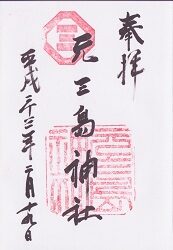 奉拝
元三島神社
平成二十三年二月十九日